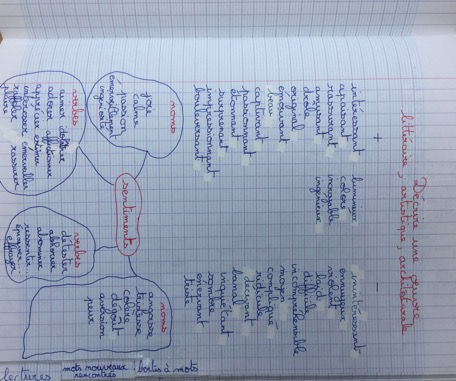 Décrire une œuvre
littéraire, artistique, architecturale
+
intéressant
apaisant
rassurant
amusant
drôle
original
émouvant
beau
captivant
passionnant
étonnant
surprenant
impressionnant
bouleversant
lumineux
coloré
incroyable
ingénieux
-
inintéressant
ennuyeux
violent
laid
difficile
incompréhensible
moyen
compliqué
ridicule
décevant
banal
inquiétant
sombre
énervant
triste
sentiments
noms
joie
calme
passion
émerveillement
ingéniosité
verbes
aimer
adorer
apprécier estimer
intéresser émerveiller
raffoler rassurer
plaire
verbes
détester
abhorrer
ressentir
effrayer
noms
angoisse
tristesse
colère
dégoût
aversion
peur
lectures
mots nouveaux
rencontrés
boîtes à mots